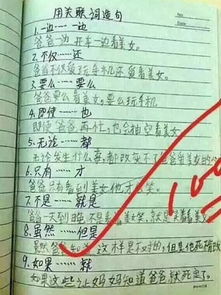 用关联词造句
1.一边……一边
爸爸一边开车一边看美女。
2.不仅……还
爸爸不仅爱玩手机还爱看美女。
3.要么……要么
爸爸要么看美女,要么玩手机。
4.即使……也
即使爸爸再忙,也会抽空看美女。
5.无论……都
无论发生什么事,都改变不了爸爸看美女的
6.只有……才
爸爸只有看到美女他才会笑。
7.不是……就是
爸爸一天到晚不是看美女,就是
8.虽然……但是
虽然爸爸知道这样是不对的,但是他死顽改
9.如果……就
如果这些让妈妈知道爸爸就死定了。
100